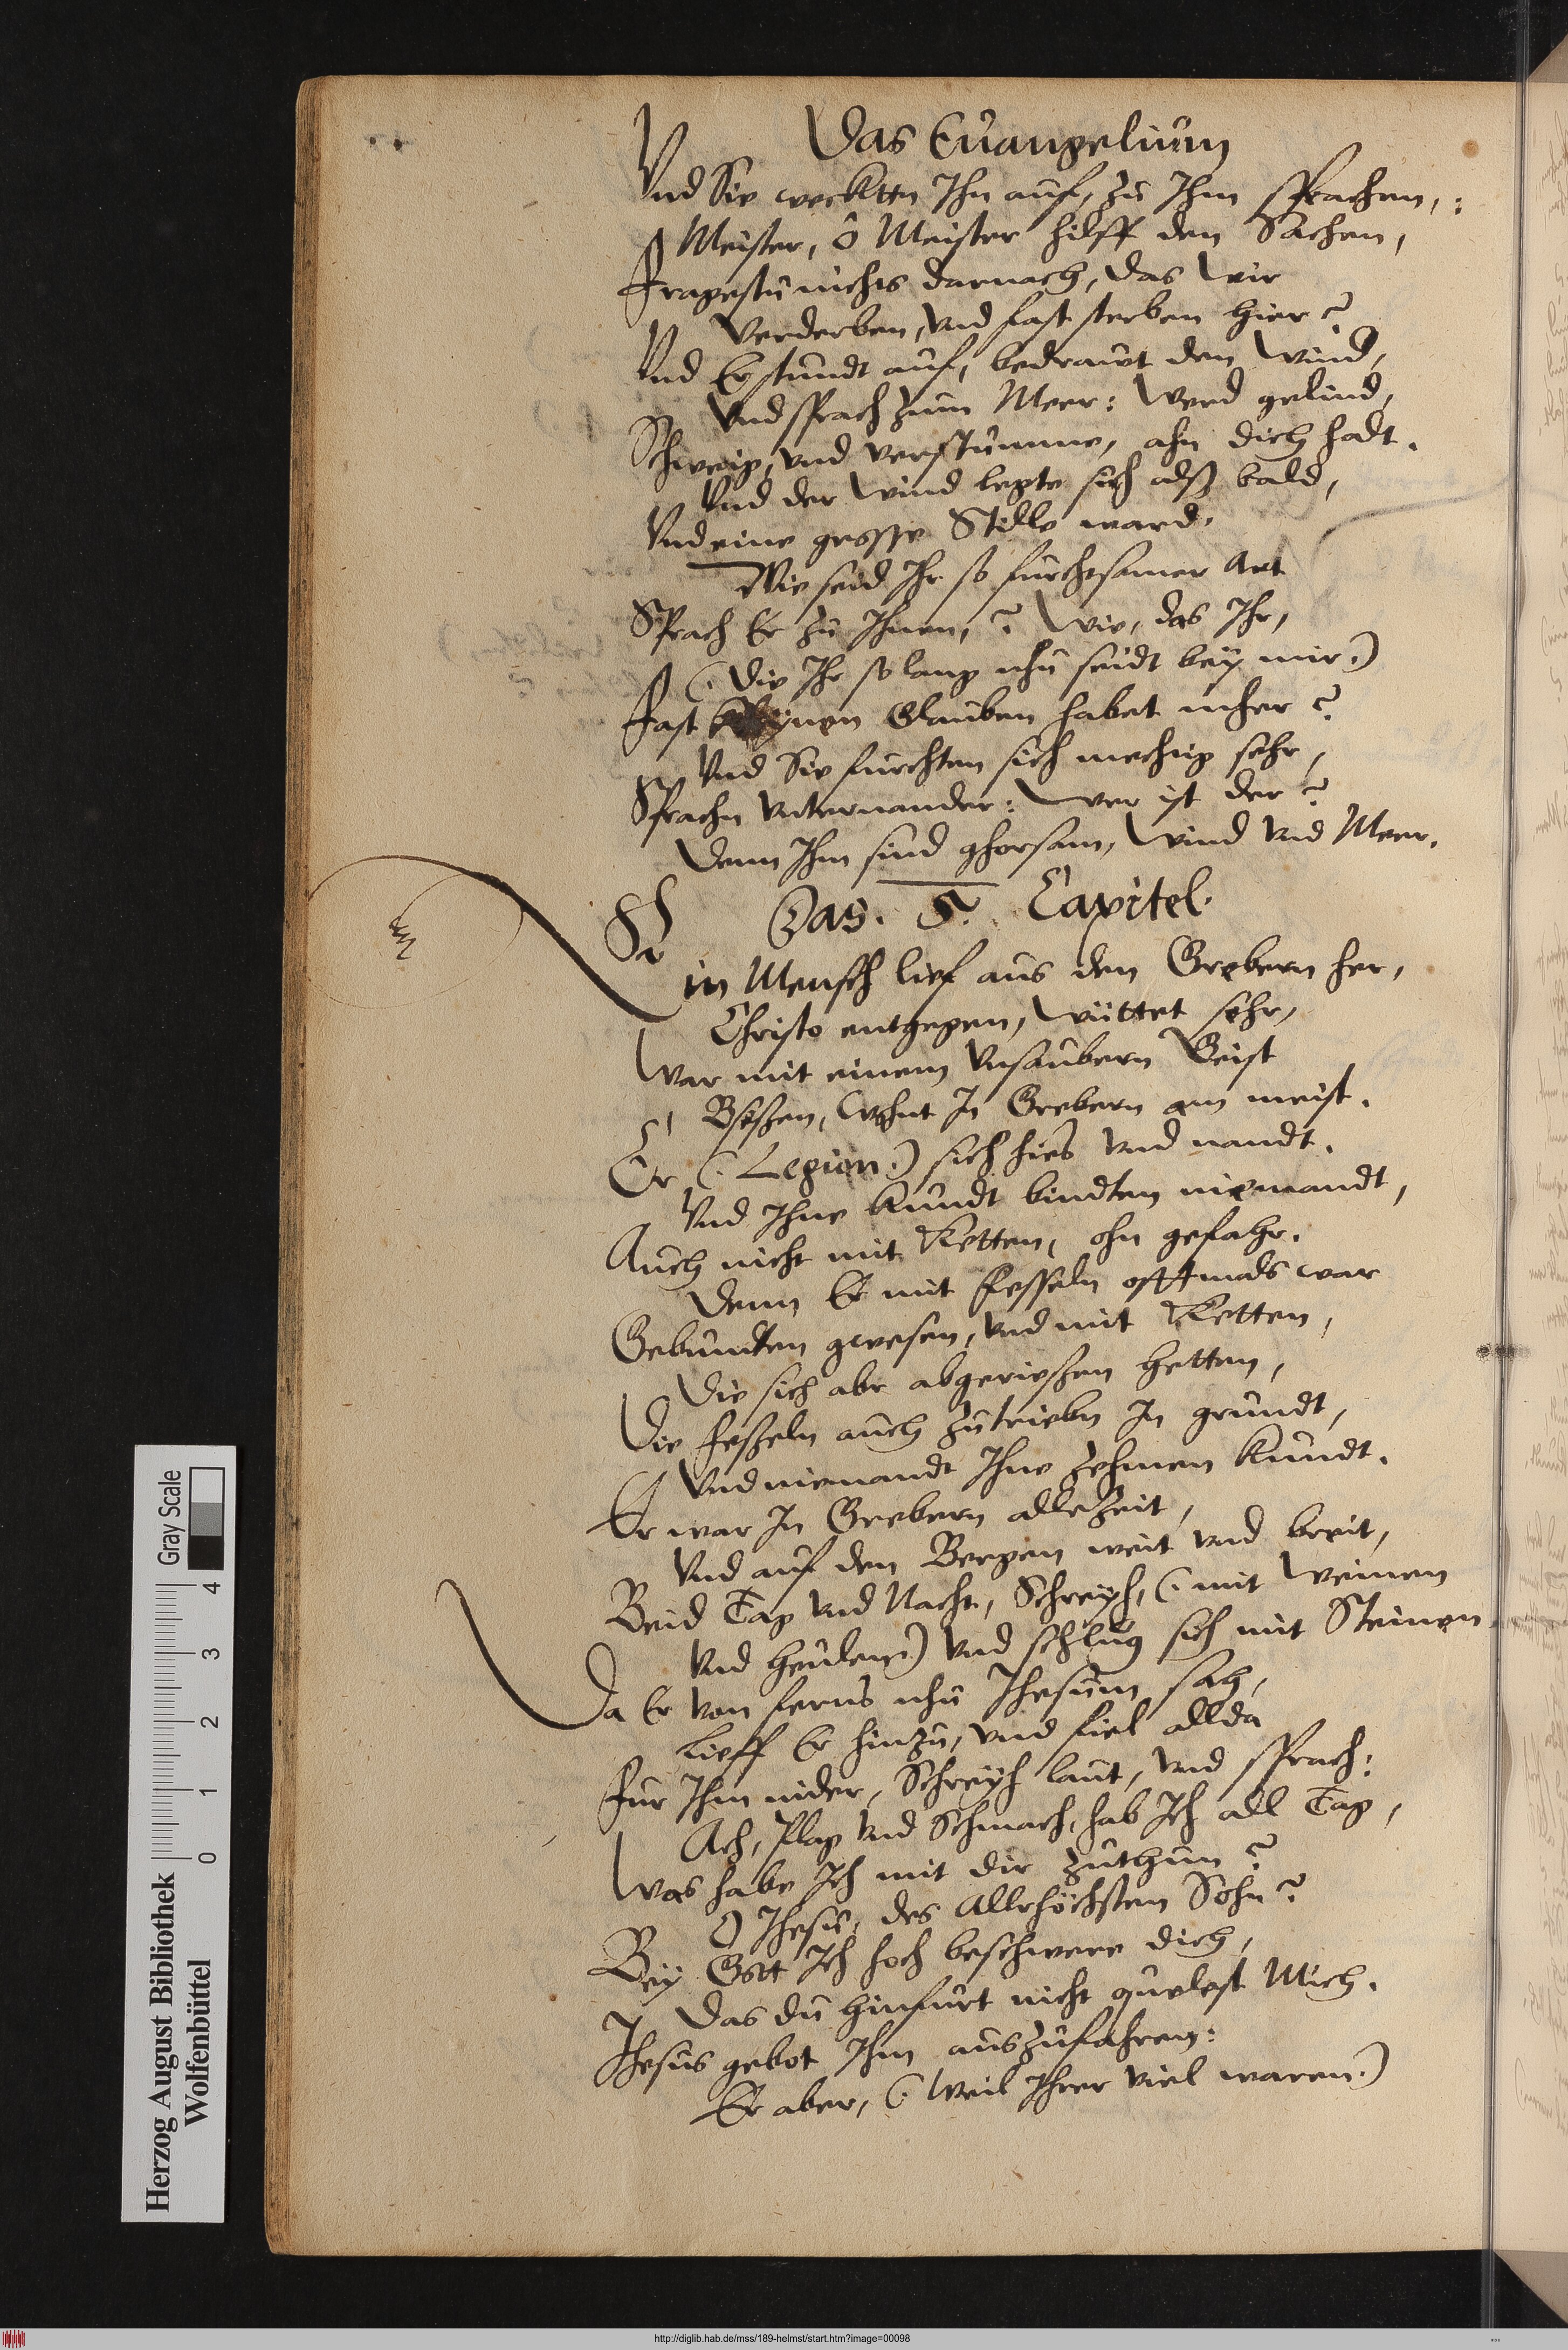 Das Euangelium
Vnd Sie wecktten Ihn auf, zu Ihm sprachen,:
Meister, ô Meister hilff den Sachen,
Fragestu nichts darnach, das Wir
Verderben, vnd fast sterben hier?
Vnd Er stundt auf, bedrawt den Wind,
Vnd sprach zum Meer: Werd gelind,
Schweig, vnd verstumme, ahn dich halt.
Vnd der Wind legte sich alß bald,
Vnd eine grosse Stille ward.
Wie seid Ihr so furchtsamer Art
Sprach Er zu Ihnen,? Wie, das Ihr,
(. Die Ihr so lang nhu seidt bey mir.)
Fast keynen Glauben habet mher?
Vnd Sie furchten sich mechtig sehr,
Sprachn vnternander: Wer ist der?
Denn Ihm sind ghorsam, Wind vnd Meer.
Das. 5. Capitel.
Ein Mensch lief aus den Grebern her,
Christo entgegen, Wüttet sehr,
War mit einem Vnsaubern Geist
Bseßen, Wohnt In Grebern am meist.
Er (. Legion.) sich hies vnd nandt.
Vnd Ihne kundt bindten niemandt,
Auch nicht mit Ketten, ohn gefahr.
Denn Er mit fesseln offtmals war
Gebundten gwesen, vnd mit Ketten,
Die sich abr abgerießen hetten,
Die feßeln auch zutriebn In grundt,
Vnd niemandt Ihne zehmen kundt.
Er war In Grebern allezeit,
Vnd auf den Bergen weit vnd breit,
Beid Tag vnd Nacht, Schreyh, (. mit Weinen
Vnd heulen.) vnd schlug sich mit Steinen
Da Er von ferns nhu Ihesum sah,
Lieff Er hinzu, vnd fiel allda
Für Ihm nider, Schreyh laut, vnd sprach:
Ach, Plag vnd Schmach, hab Ich all Tag,
Was habe Ich mit dir zuthun?
O Ihesu, des Allrhöchsten Sohn?
Bey Gott Ich hoch beschwere dich,
Das du hinfurt nicht quelest Mich.
Ihesus gebot Ihm auszufahren:
Er aber, (. Weil Ihrer viel waren.)
Herzog August Bibliothek
Wolfenbüttel
0 1 2 3 4
Gray Scale
http://diglib.hab.de/mss/189-helmst/start.htm?image=00098